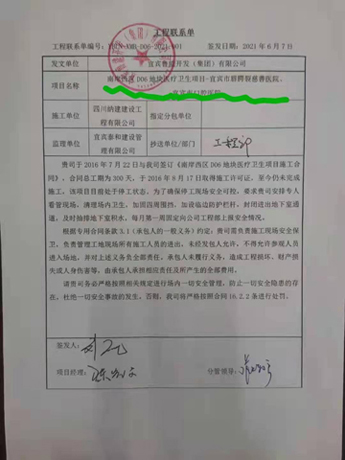 工程联系单
工程联系单编号：
签发日期：2021 年 6 月 7 日
发文单位
宜宾鲁能开发（集团）有限公司
项目名称
南岸西区 D06 地块医疗卫生项目-宜宾市
施工单位
四川纳建建设工程有限公司
指定分包单位
监理单位
宜宾泰和建设管理有限公司
抄送单位/部门
工程部
贵司于 2016 年 7 月 22 日与我司签订《南岸西区 D06 地块医疗卫生项目施工合
同》，合同总工期为 300 天，于 2016 年 8 月 17 日取得施工许可证，至今仍未完成
施工，该项目目前处于停工状态。为了确保停工现场安全可控，要求贵司安排专人
看管现场，清理场内卫生，加固四周围挡，加设临边防护栏杆，封闭进出地下室通
道，及时抽排地下室积水，每月第一周固定向公司工程部上报安全情况。
根据专用合同条款 3.1（承包人的一般义务）约定：贵司需负责施工现场安全保
卫，负责管理工地现场所有施工人员的进出，未经发包人允许，不得允许参观人员
进入场地，并对上述义务负全部责任，承包人未履行义务，造成工程损坏、财产损
失或人身伤害等，由承包人承担相应责任及所产生的全部费用。
请贵司务必严格按照相关规定进行场内一切安全管理，防止一切安全隐患的存
在，杜绝一切安全事故的发生。否则，我司将严格按照合同 16.2.2 条进行处罚。
签发人：
项目经理：
分管领导：